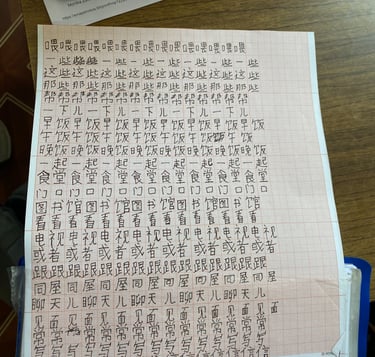 喂喂喂喂喂喂喂喂喂喂喂喂喂喂
一些 一些 一些 一些 一些 一些
这些这些这些这些这些这些
那些那些那些那些那些那些
帮帮帮帮帮帮帮帮帮帮
一下儿一下儿一下儿一下儿
早饭早饭早饭早饭早饭早饭
午饭午饭午饭午饭午饭午饭
晚饭晚饭晚饭晚饭晚饭晚饭
一起一起一起一起一起一起
食堂食堂食堂食堂食堂食堂
门口门口门口门口门口门口
图书馆图书馆图书馆图书馆
看看看看看看看看看看看
电视电视电视电视电视电视
或者或者或者或者或者或者
跟跟跟跟跟跟跟跟跟跟跟跟
同屋同屋同屋同屋同屋同屋
聊天儿聊天儿聊天儿聊天儿
见面见面见面见面见面
常常常常常常常常常常
写写写写写写写写写写